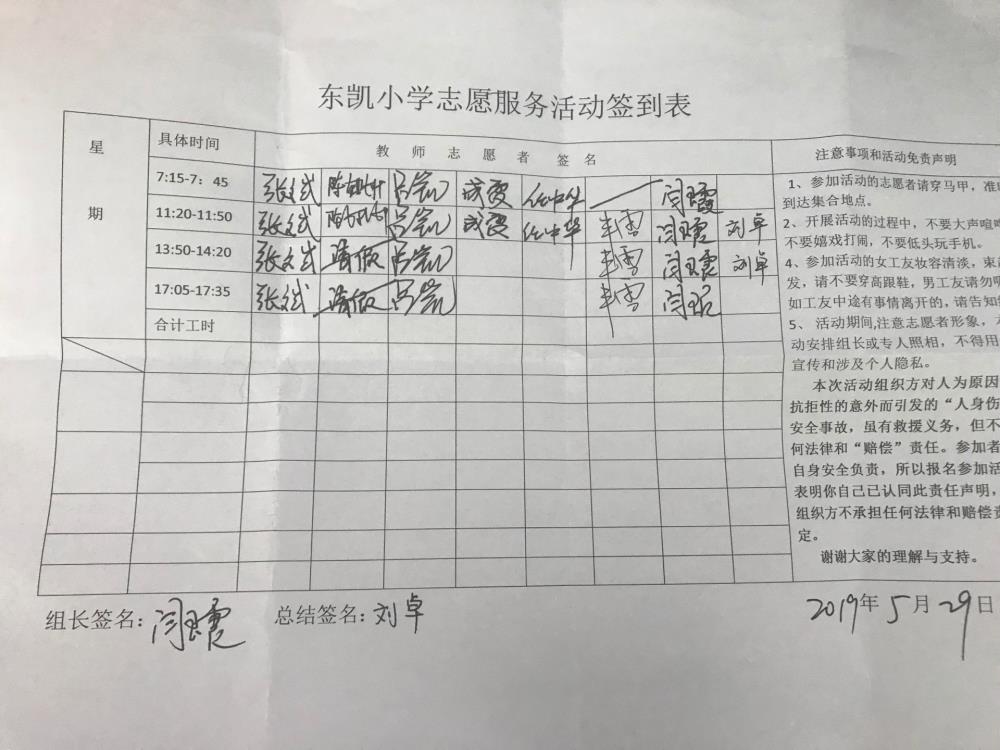 东凯小学志愿服务活动签到表
星期
具体时间
教师志愿者签名
注意事项和活动免责声明
7:15-7：45 张文斌 吕凯 成霞 任中华 闫璐霞
11:20-11:50 张文斌 吕凯 成霞 任中华 闫 刘卓
13:50-14:20 张文斌 吕凯 闫 刘卓
17:05-17:35 张文斌 吕凯 闫
合计工时
1、参加活动的志愿者请穿马甲，准
到达集合地点。
2、开展活动的过程中，不要大声喧
不要嬉戏打闹，不要低头玩手机。
4、参加活动的女工友妆容清淡，束
发，请不要穿高跟鞋，男工友请勿
如工友中途有事情离开的，请告知
5、 活动期间,注意志愿者形象，
动安排组长或专人照相，不得用
宣传和涉及个人隐私。
本次活动组织方对人为原因
抗拒性的意外而引发的“人身伤
安全事故，虽有救援义务，但不
何法律和“赔偿”责任。参加者
自身安全负责，所以报名参加活
表明你自己已认同此责任声明，
组织方不承担任何法律和赔偿责
定。
谢谢大家的理解与支持。
组长签名： 总结签名：刘卓
2019年5月29日